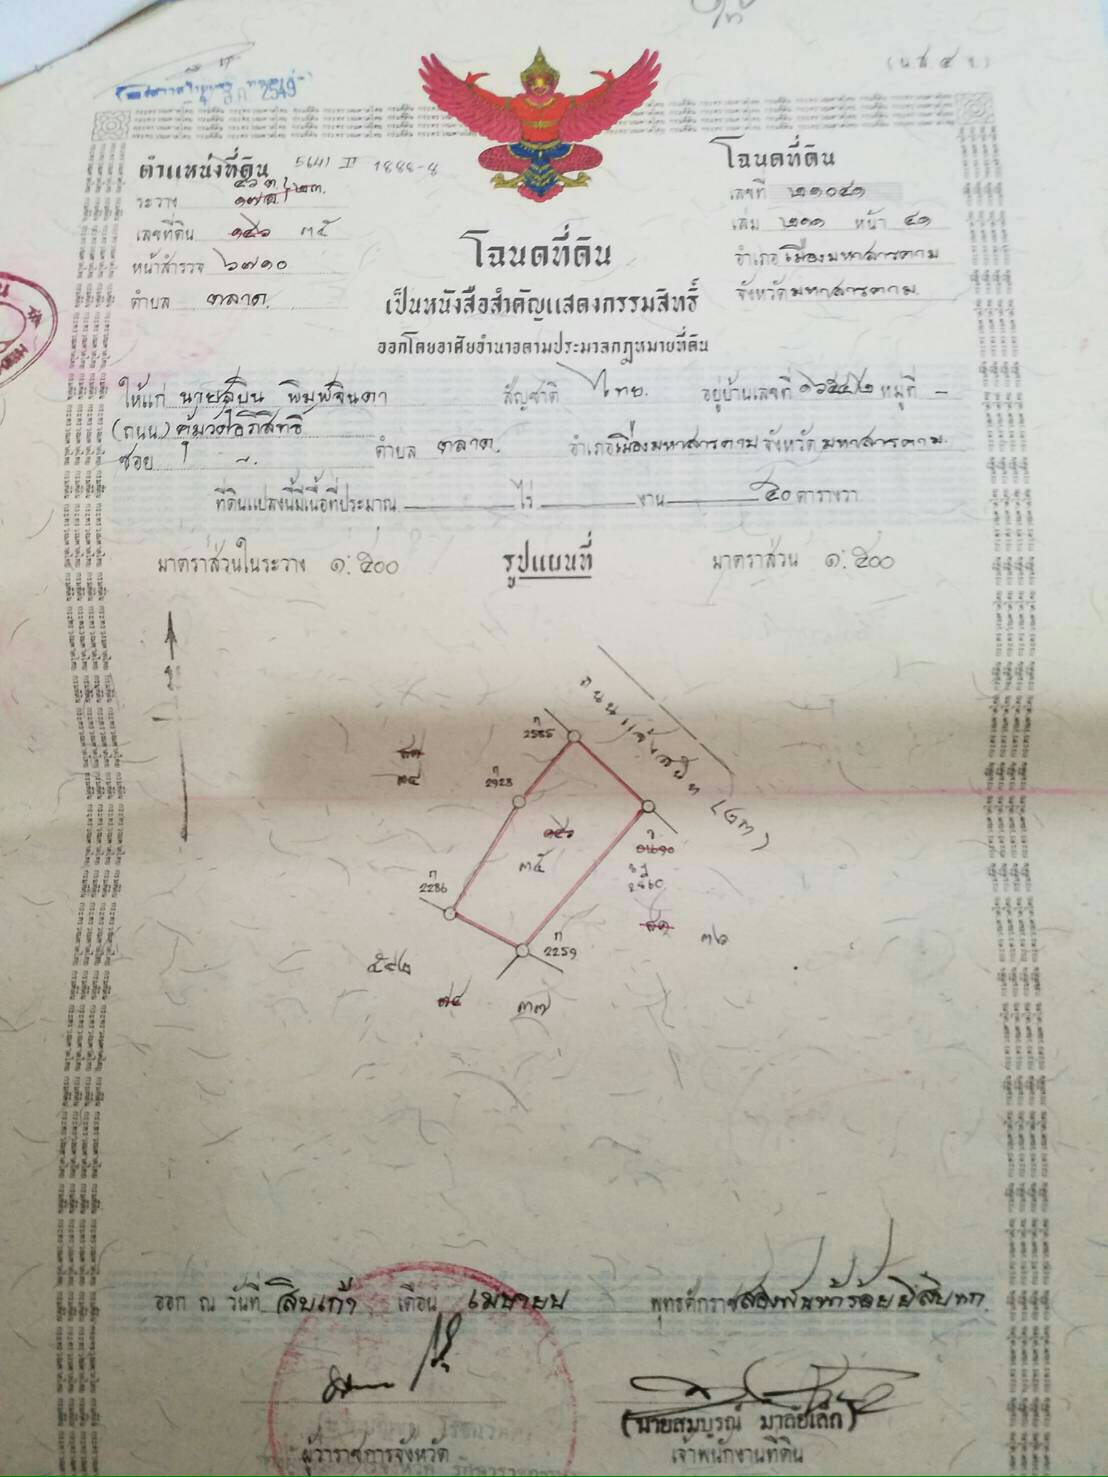 (น.ส.๔ จ.)
2549
ตำแหน่งที่ดิน 5641 III 1888-8
โฉนดที่ดิน
ระวาง
เลขที่ ๒๑๐๔๑
เลขที่ดิน ๑๕๖ ๓๕
เล่ม ๒๑๑ หน้า ๔๑
หน้าสำรวจ ๖๗๑๐
อำเภอ เมืองมหาสารคาม
ตำบล ตลาด.
จังหวัด มหาสารคาม.
โฉนดที่ดิน
เป็นหนังสือสำคัญแสดงกรรมสิทธิ์
ออกโดยอาศัยอำนาจตามประมวลกฎหมายที่ดิน
ให้แก่ นายสุบิน พิมพ์จินดา สัญชาติ ไทย. อยู่บ้านเลขที่ ๑๖๕๔/๒ หมู่ที่ -
(ถนน) คุ้มวัดอภิสิทธิ์
ซอย -. ตำบล ตลาด. อำเภอ เมืองมหาสารคาม จังหวัด มหาสารคาม.
ที่ดินแปลงนี้มีเนื้อที่ประมาณ ไร่ งาน ๕๐ ตารางวา
มาตราส่วนในระวาง ๑:๕๐๐ รูปแผนที่ มาตราส่วน ๑:๕๐๐
2585
2928
๑๕๖
๓๕
2460
2286
2259
๓๖
๕๙๒
๗๔
๓๗
ออก ณ วันที่ สิบเก้า เดือน เมษายน พุทธศักราช สองพันห้าร้อยยี่สิบหก.
(นายสมบูรณ์ มาลัยเล็ก)
ผู้ว่าราชการจังหวัด เจ้าพนักงานที่ดิน